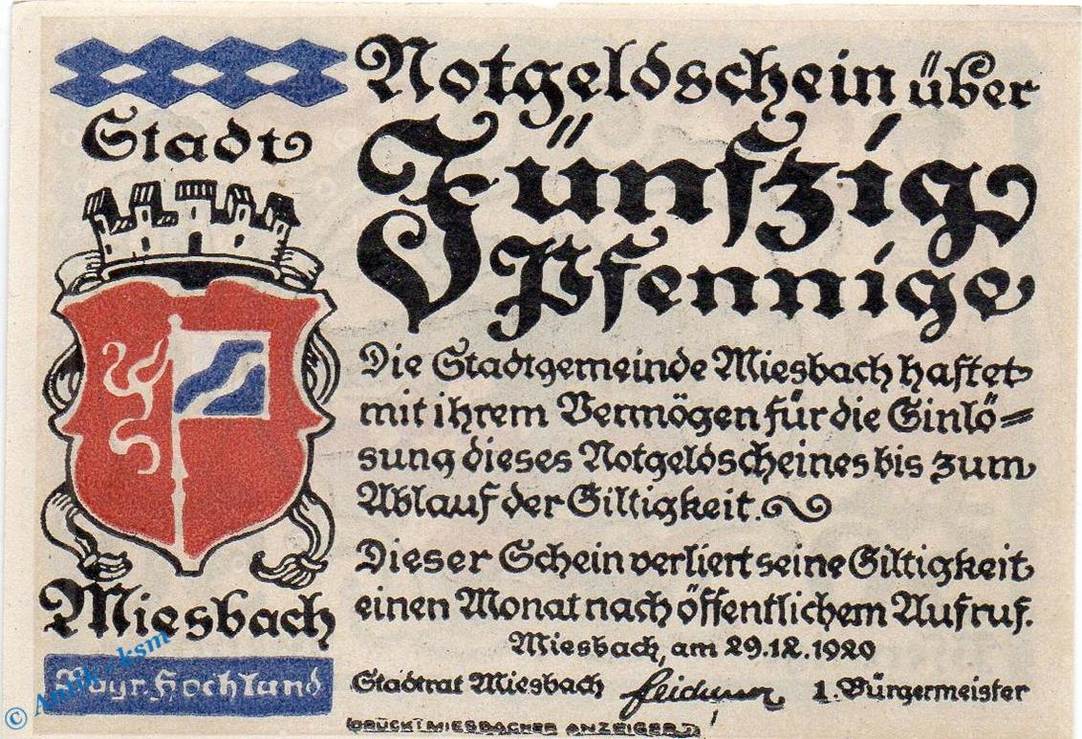 Stadt
Miesbach
Bayr. Hochland
Notgeldschein über
Fünfzig
Pfennige
Die Stadtgemeinde Miesbach haftet
mit ihrem Vermögen für die Einlö=
sung dieses Notgeldscheines bis zum
Ablauf der Giltigkeit.
Dieser Schein verliert seine Giltigkeit
einen Monat nach öffentlichem Aufruf.
Miesbach, am 29.12.1920
Stadtrat Miesbach 1. Bürgermeister
(DRUCK: MIESBACHER ANZEIGER)